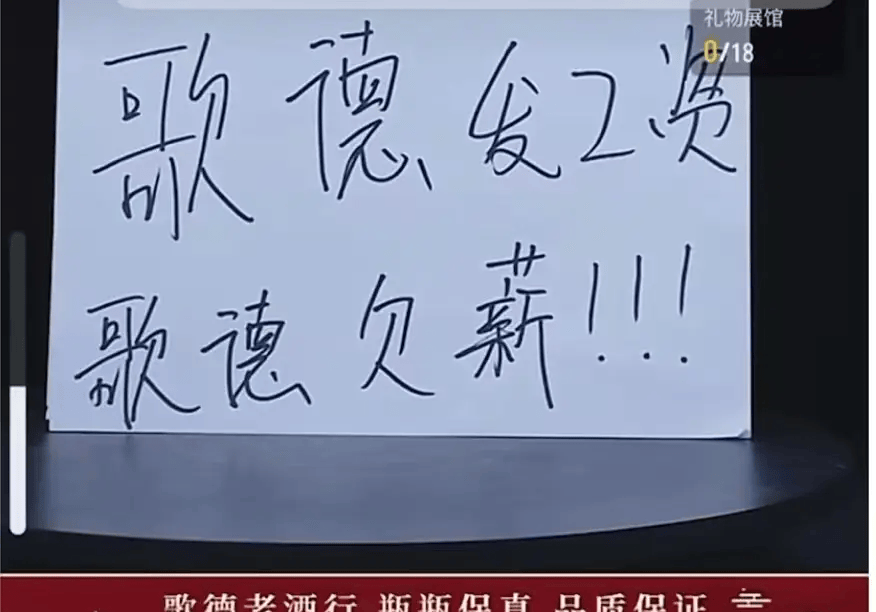 礼物展馆
0/18
歌德发工资
歌德欠薪!!!
歌德老酒行 瓶瓶保真 品质保证